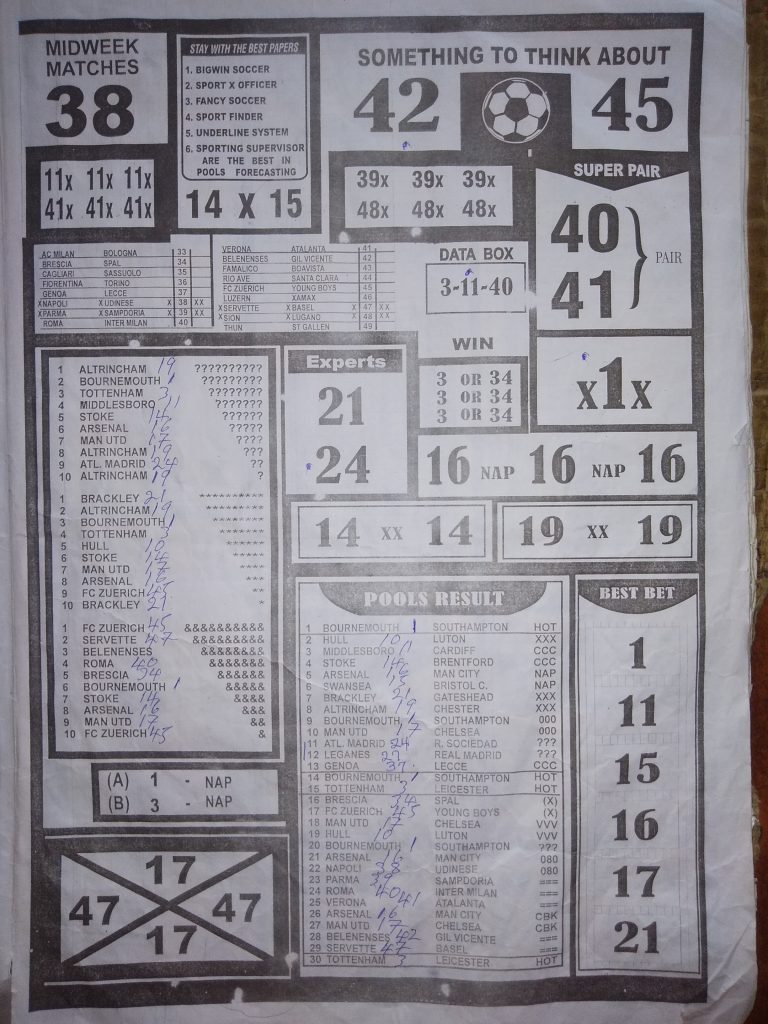 MIDWEEK
MATCHES
38
STAY WITH THE BEST PAPERS
1. BIGWIN SOCCER
2. SPORT X OFFICER
3. FANCY SOCCER
4. SPORT FINDER
5. UNDERLINE SYSTEM
6. SPORTING SUPERVISOR
ARE THE BEST IN
POOLS FORECASTING
14 X 15
SOMETHING TO THINK ABOUT
42 45
11x 11x 11x
41x 41x 41x
39x 39x 39x
48x 48x 48x
SUPER PAIR
40
41
PAIR
AC MILAN BOLOGNA 33
BRESCIA SPAL 34
CAGLIARI SASSUOLO 35
FIORENTINA TORINO 36
GENOA LECCE 37
XNAPOLI XUDINESE X 38 XX
XPARMA XSAMPDORIA X 39 XX
ROMA INTER MILAN 40
VERONA ATALANTA 41
BELENENSES GIL VICENTE 42
FAMALICO BOAVISTA 43
RIO AVE SANTA CLARA 44
FC ZUERICH YOUNG BOYS 45
LUZERN XAMAX 46
XSERVETTE XBASEL X 47 XX
XSION XLUGANO X 48 XX
THUN ST GALLEN 49
DATA BOX
3-11-40
WIN
3 OR 34
3 OR 34
3 OR 34
X1X
1 ALTRINCHAM 19 ??????????
2 BOURNEMOUTH 1 ?????????
3 TOTTENHAM 3 ????????
4 MIDDLESBORO 11 ???????
5 STOKE 14 ??????
6 ARSENAL 16 ?????
7 MAN UTD 17 ????
8 ALTRINCHAM 19 ???
9 ATL. MADRID 24 ??
10 ALTRINCHAM 19 ?
1 BRACKLEY 21 **********
2 ALTRINCHAM 19 *********
3 BOURNEMOUTH 1 ********
4 TOTTENHAM 3 *******
5 HULL 10 ******
6 STOKE 14 *****
7 MAN UTD 17 ****
8 ARSENAL 16 ***
9 FC ZUERICH 45 **
10 BRACKLEY 21 *
1 FC ZUERICH 45 &&&&&&&&&&
2 SERVETTE 47 &&&&&&&&&
3 BELENENSES &&&&&&&&
4 ROMA 40 &&&&&&&
5 BRESCIA 34 &&&&&&
6 BOURNEMOUTH 1 &&&&&
7 STOKE 14 &&&&
8 ARSENAL 16 &&&
9 MAN UTD 17 &&
10 FC ZUERICH 45 &
Experts
21
24
16 NAP 16 NAP 16
14 XX 14
19 XX 19
POOLS RESULT
1 BOURNEMOUTH 1 SOUTHAMPTON HOT
2 HULL 10 LUTON XXX
3 MIDDLESBORO CARDIFF CCC
4 STOKE 14 BRENTFORD CCC
5 ARSENAL MAN CITY NAP
6 SWANSEA BRISTOL C. NAP
7 BRACKLEY 21 GATESHEAD XXX
8 ALTRINCHAM 19 CHESTER XXX
9 BOURNEMOUTH SOUTHAMPTON 000
10 MAN UTD 17 CHELSEA 000
11 ATL. MADRID 24 R. SOCIEDAD ???
12 LEGANES REAL MADRID ???
13 GENOA 37 LECCE CCC
14 BOURNEMOUTH 1 SOUTHAMPTON HOT
15 TOTTENHAM 3 LEICESTER HOT
16 BRESCIA 34 SPAL (X)
17 FC ZUERICH 45 YOUNG BOYS (X)
18 MAN UTD 17 CHELSEA VVV
19 HULL 10 LUTON VVV
20 BOURNEMOUTH 1 SOUTHAMPTON ???
21 ARSENAL 16 MAN CITY 080
22 NAPOLI 38 UDINESE 080
23 PARMA 39 SAMPDORIA ===
24 ROMA 40 INTER MILAN ===
25 VERONA 41 ATALANTA ===
26 ARSENAL 16 MAN CITY CBK
27 MAN UTD 17 CHELSEA CBK
28 BELENENSES 42 GIL VICENTE ===
29 SERVETTE 47 BASEL ===
30 TOTTENHAM 3 LEICESTER HOT
BEST BET
1
11
15
16
17
21
(A) 1 - NAP
(B) 3 - NAP
17
47 47
17